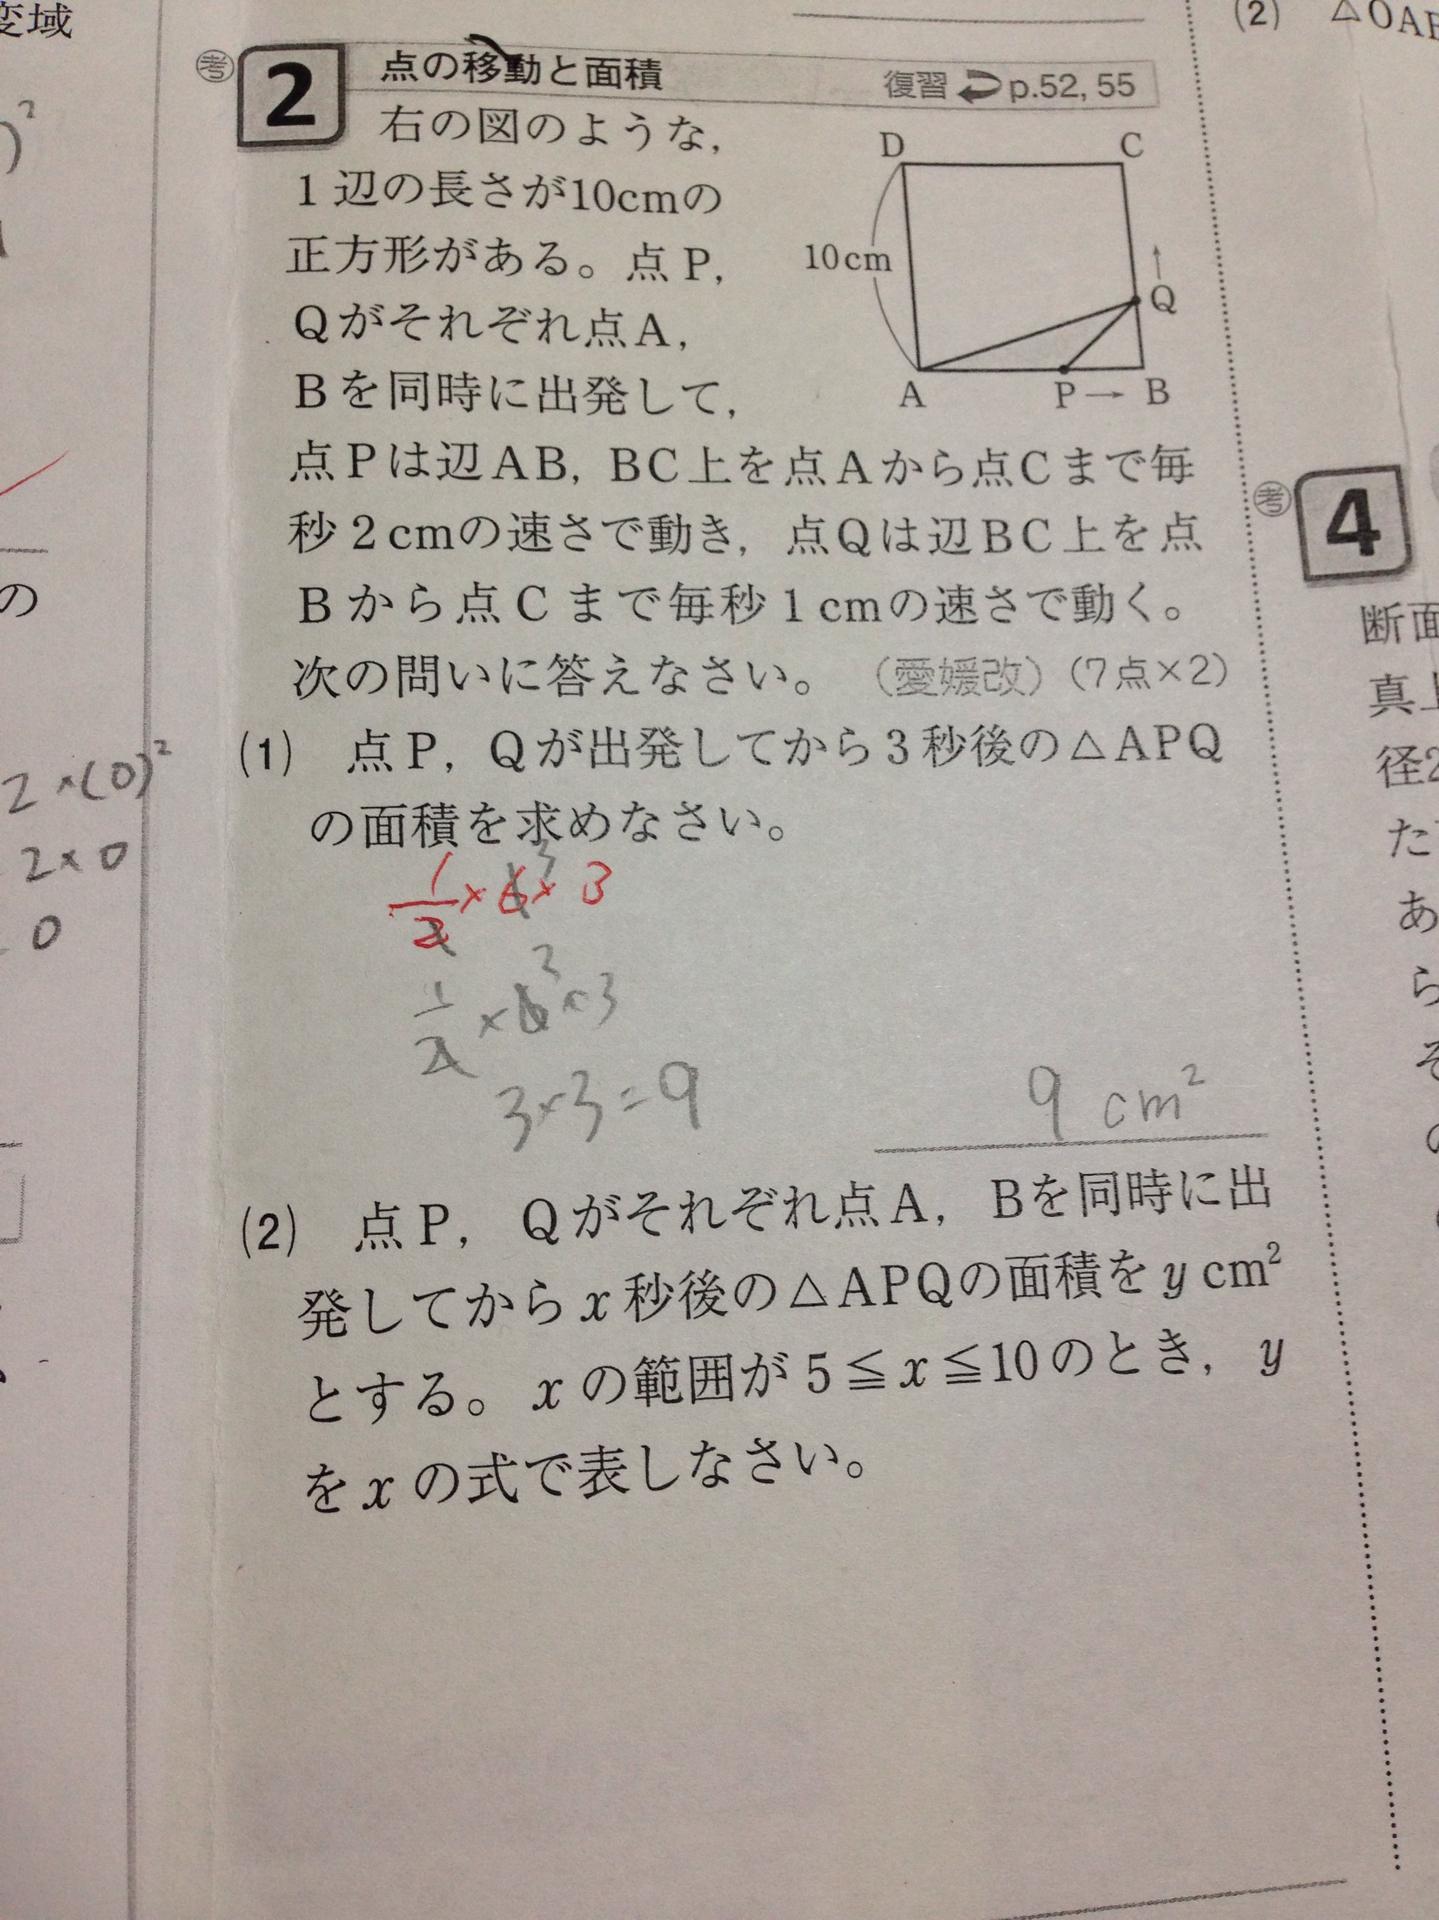 変域
2
考
2
点の移動と面積
復習 p.52, 55
右の図のような,
1辺の長さが10cmの
正方形がある。点P,
Qがそれぞれ点A,
Bを同時に出発して,
点Pは辺AB, BC上を点Aから点Cまで毎
秒2cmの速さで動き, 点Qは辺BC上を点
Bから点Cまで毎秒1cmの速さで動く。
次の問いに答えなさい。 (愛媛改) (7点×2)
D
C
10cm
Q
A
P→
B
(1) 点P, Qが出発してから3秒後の△APQ
の面積を求めなさい。
1/2 × 6 3 × 3
1/2 × 6 3 × 3
3×3=9
9 cm²
(2) 点P, Qがそれぞれ点A, Bを同時に出
発してからx秒後の△APQの面積をy cm²
とする。xの範囲が5≦x≦10のとき, y
をxの式で表しなさい。
の
2×(0)²
2×0
0
(2) △OAB
考
4
断面
真上
径2
た
あ
ら
そ
の